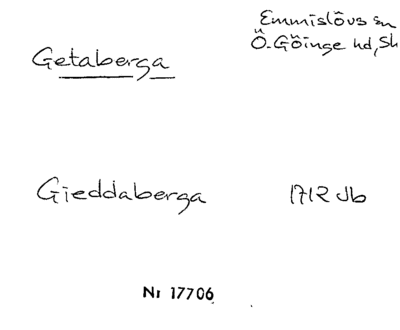 Emmislövs sn
Getaberga
Ö. Göinge hd, Sk
Gieddaberga 1712 Jb
Nr 17706